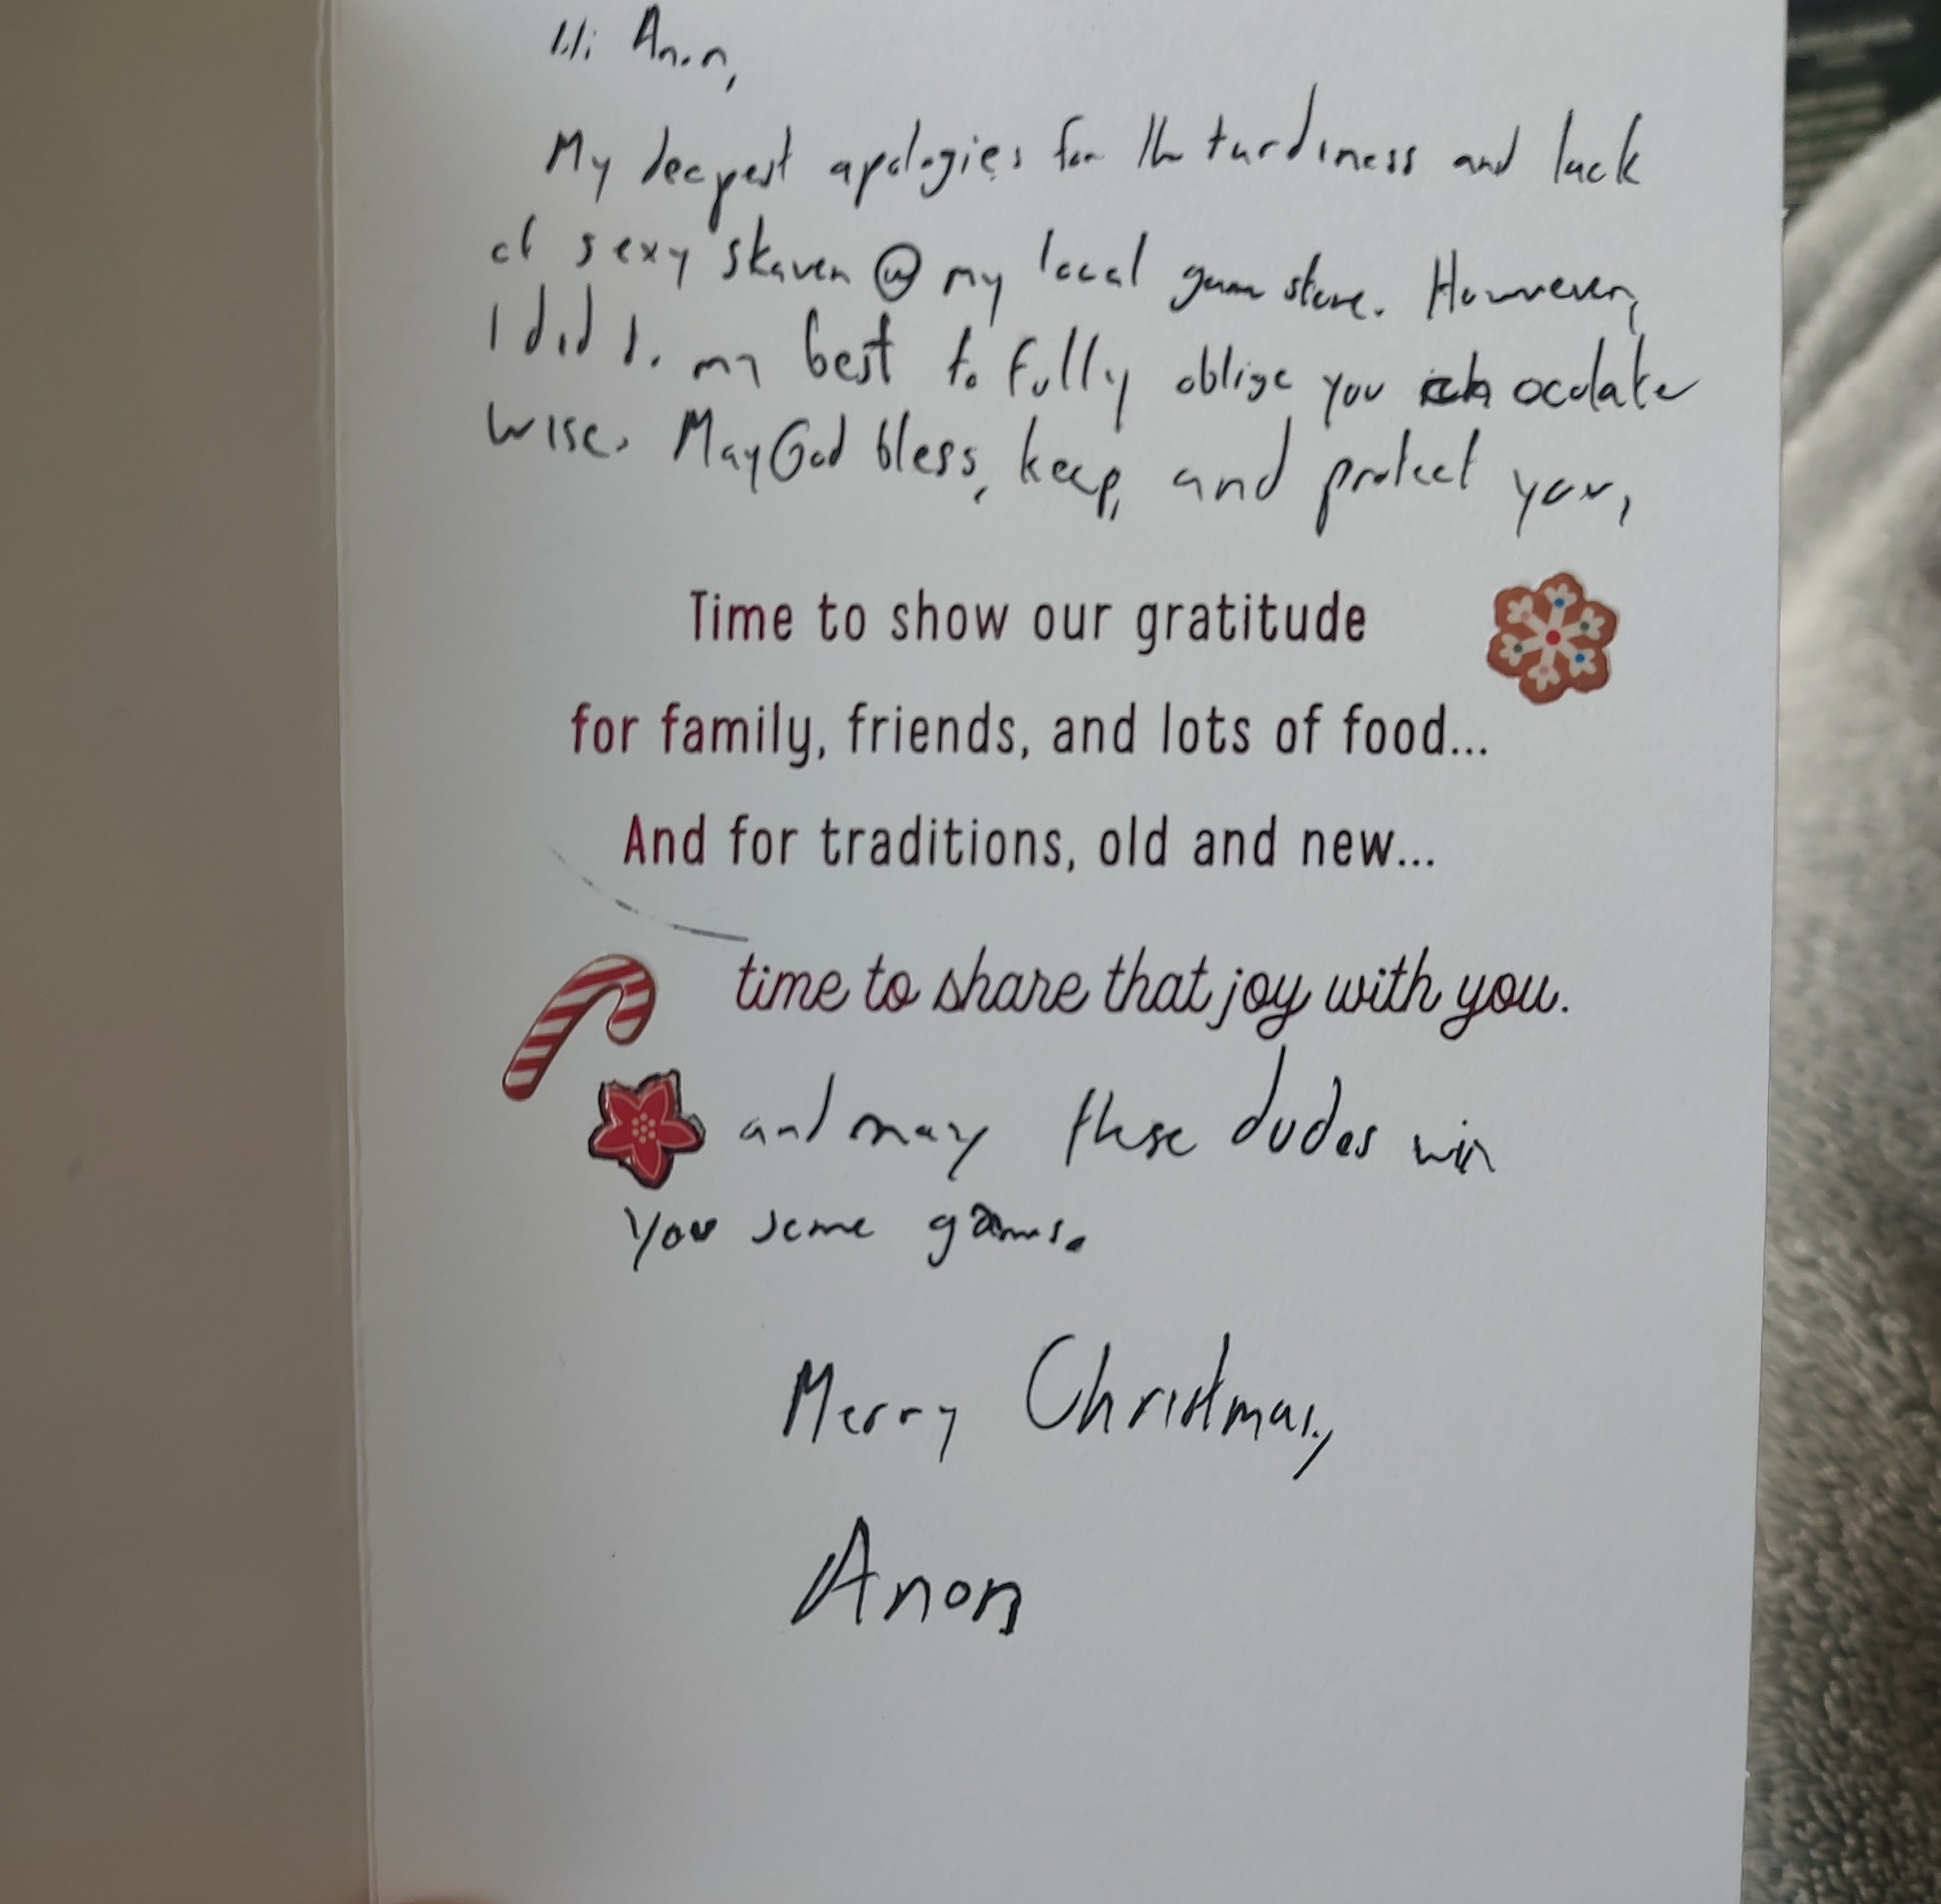 Hi Anon,
My deepest apologies for the tardiness and lack
of sexy skaven @ my local game store. However,
I did do my best to fully oblige you chocolate
wise. May God bless, keep, and protect you,
Time to show our gratitude
for family, friends, and lots of food...
And for traditions, old and new...
time to share that joy with you.
and may these dudes win
you some games.
Merry Christmas,
Anon